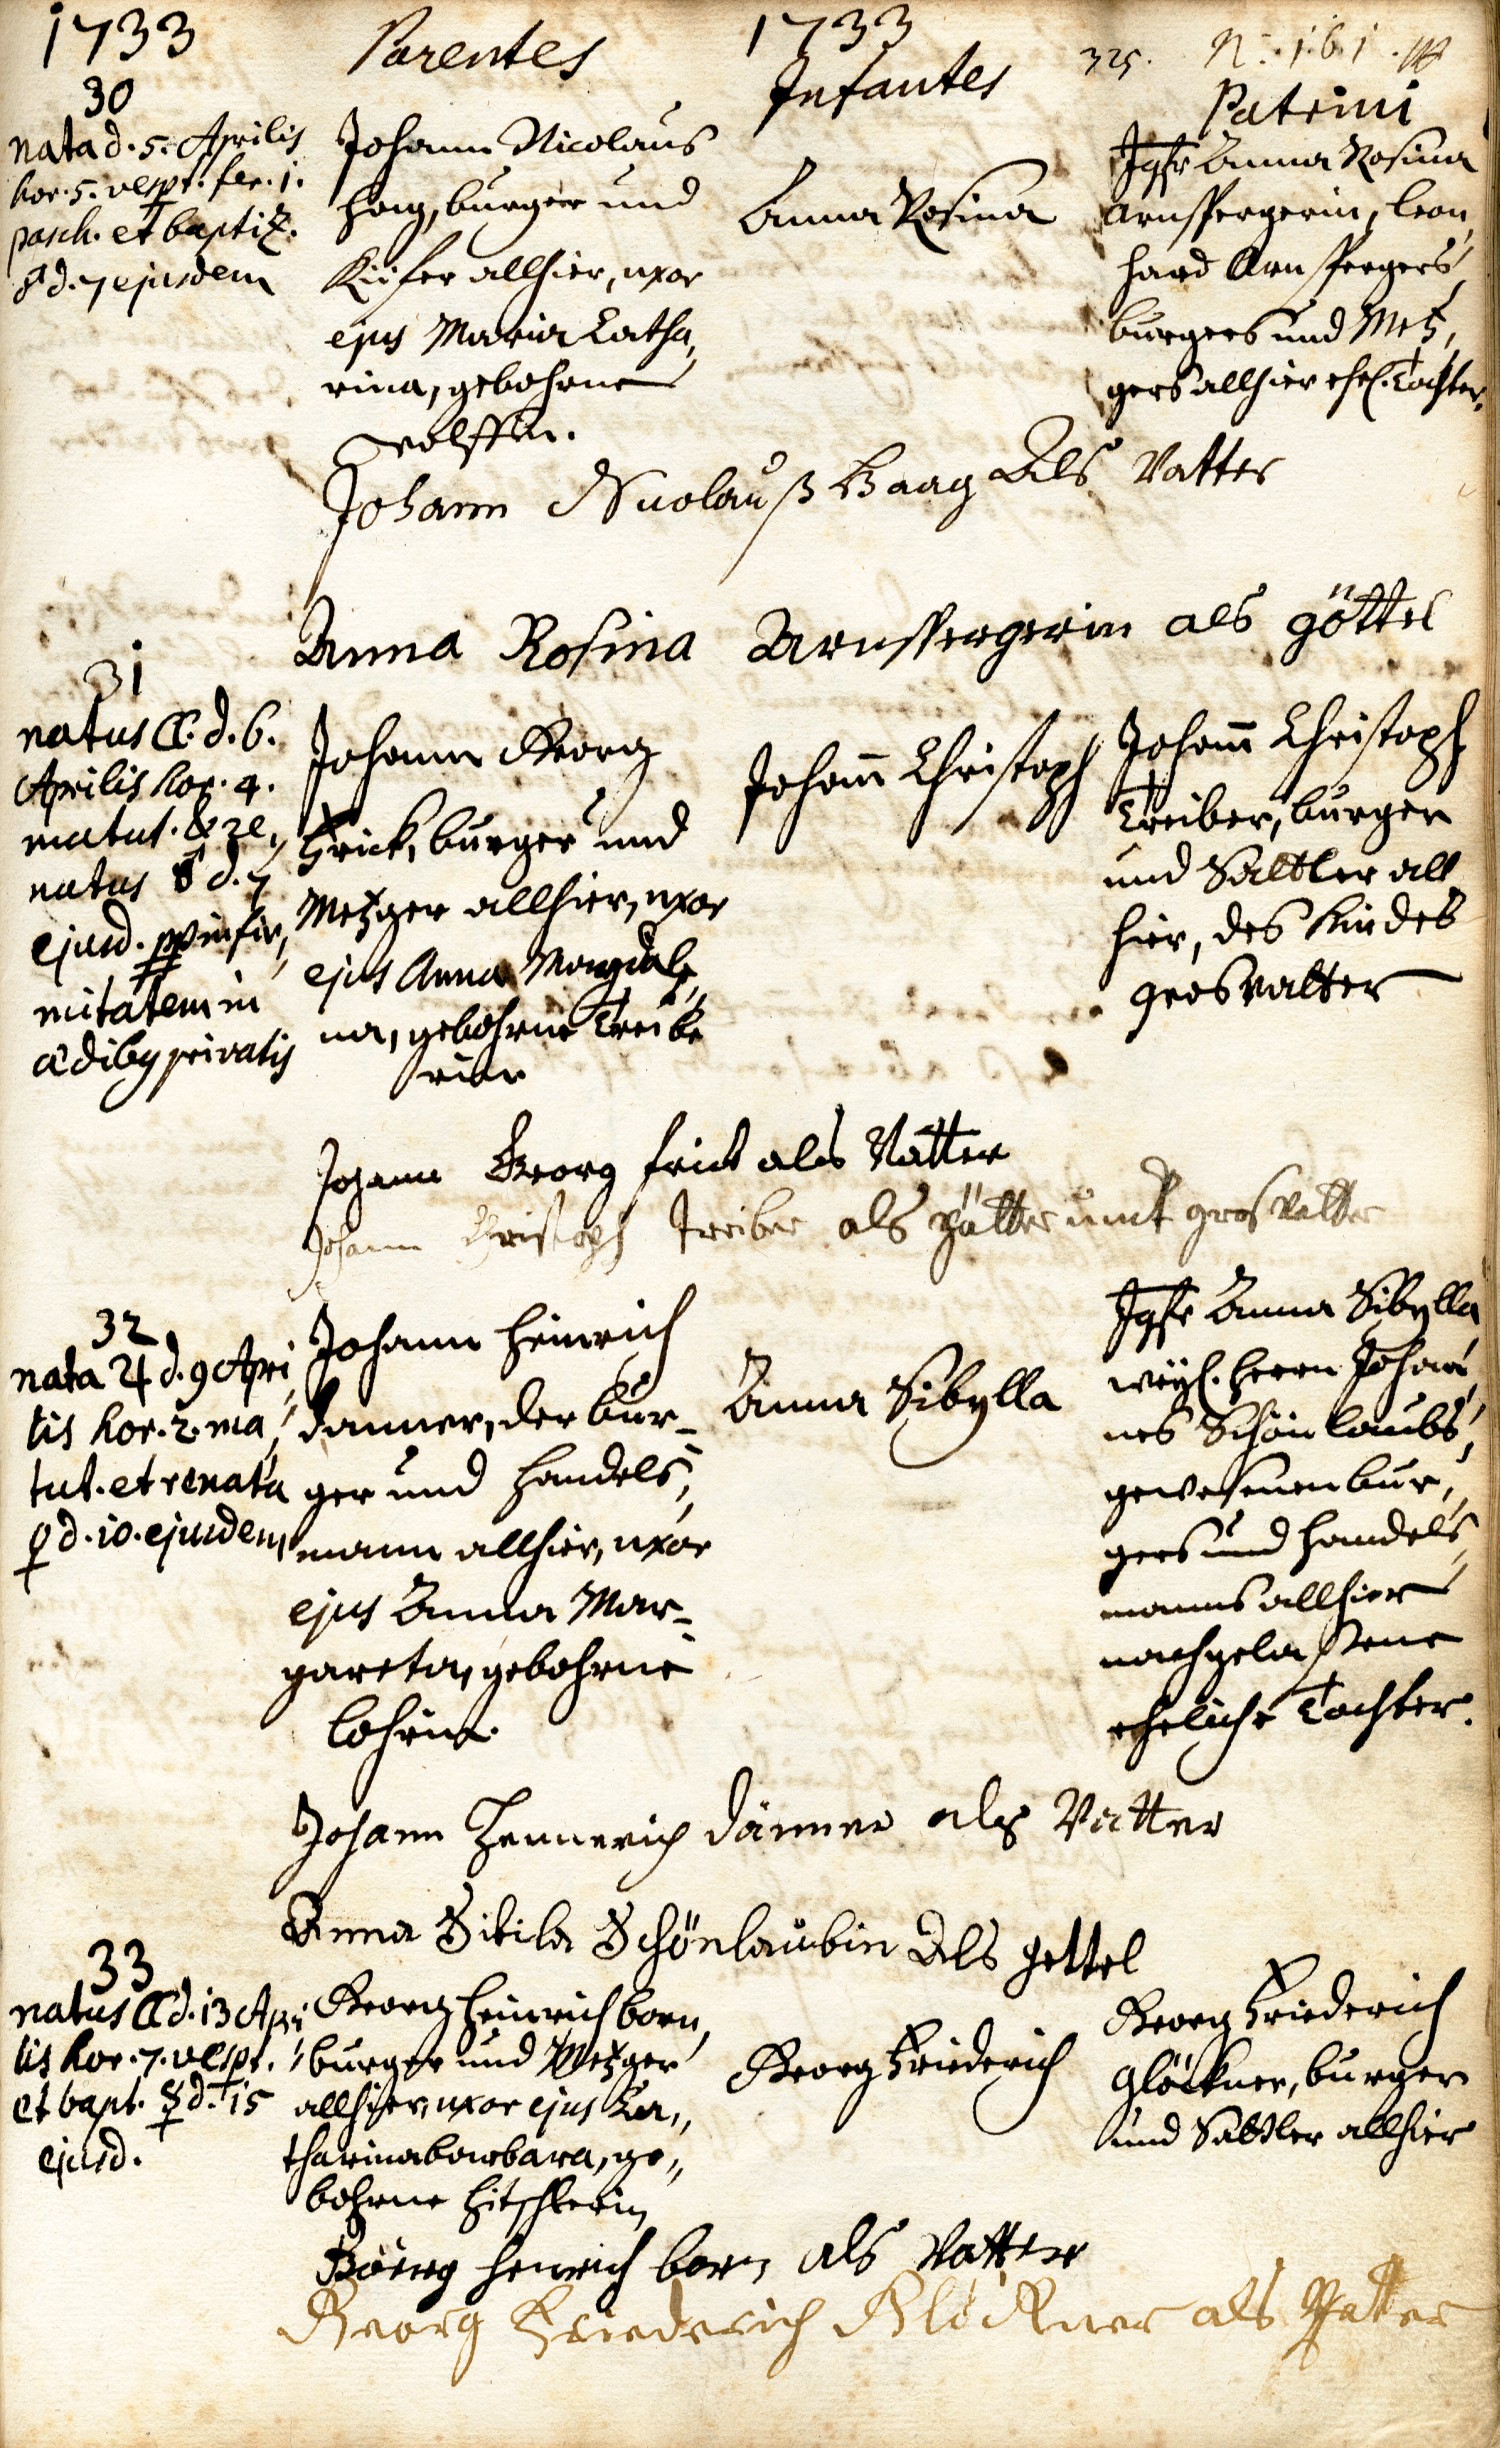 1733
Parentes
1733
Infantes
325. N. 161.
Patrini
30
nata d. 5. Aprilis
hor. 5. vespt. fer. 1.
pasch. et baptiz.
♂ d. 7 ejusdem
Johann Nicolaus
Haag, burger und
Kiefer allhier, uxor
ejus Maria Catha,
rina, gebohrne
Wolffin.
Anna Rosina
Jgfr Anna Rosina
Arnspergerin, Leon,
hard Arnspergers,
burgers und Metz,
gers allhier ehel. Tochter.
Johann Nicolauß Haag Als Vatter
Anna Rosina Arnspergerin als göttel
31
natus ☾ d. 6.
Aprilis hor. 4.
matut. & re,
natus ♂ d. 7
ejusd. pp infir,
mitatem in
ædibus privatis
Johann Georg
Frick, burger und
Metzger allhier, uxor
ejus Anna Magdale,
na, gebohrne Treibe
rin
Johann Christoph
Johann Christoph
Treiber, burger
und Sattler all
hier, des Kindes
grosvatter
Johann Georg frick als Vatter
Johann Christoph Treiber als Pätter unt grosvatter
32
nata ♃ d. 9 Apri,
lis hor. 2. ma,
tut. et renata
♀ d. 10. ejusdem
Johann Heinrich
Danner, der bur-
ger und Handels,
mann allhier, uxor
ejus Anna Mar-
gareta, gebohrne
Lohrin.
Anna Sibylla
Jgfr Anna Sibylla
weyl. Herrn Johan,
nes Schönlaubs,
gewesenen bur,
gers und Handels,
manns allhier
nachgelassene
eheliche Tochter.
Johann Hennerich Danner als Vatter
Anna Sibila Schönlaubin Als gettel
33
natus ☾ d. 13 Apri,
lis hor. 7. vespt.
et bapt. ☿ d. 15
ejusd.
Georg Heinrich Born,
burger und Metzger
allhier, uxor ejus Ca,,
tharina barbara, ge,,
bohrne Hitschlerin
Georg Friederich
Georg Friederich
Glöckner, burger
und Sattler allhier
Göerg Henrich born als Vatter
Georg Friederich Glöckner als Patter